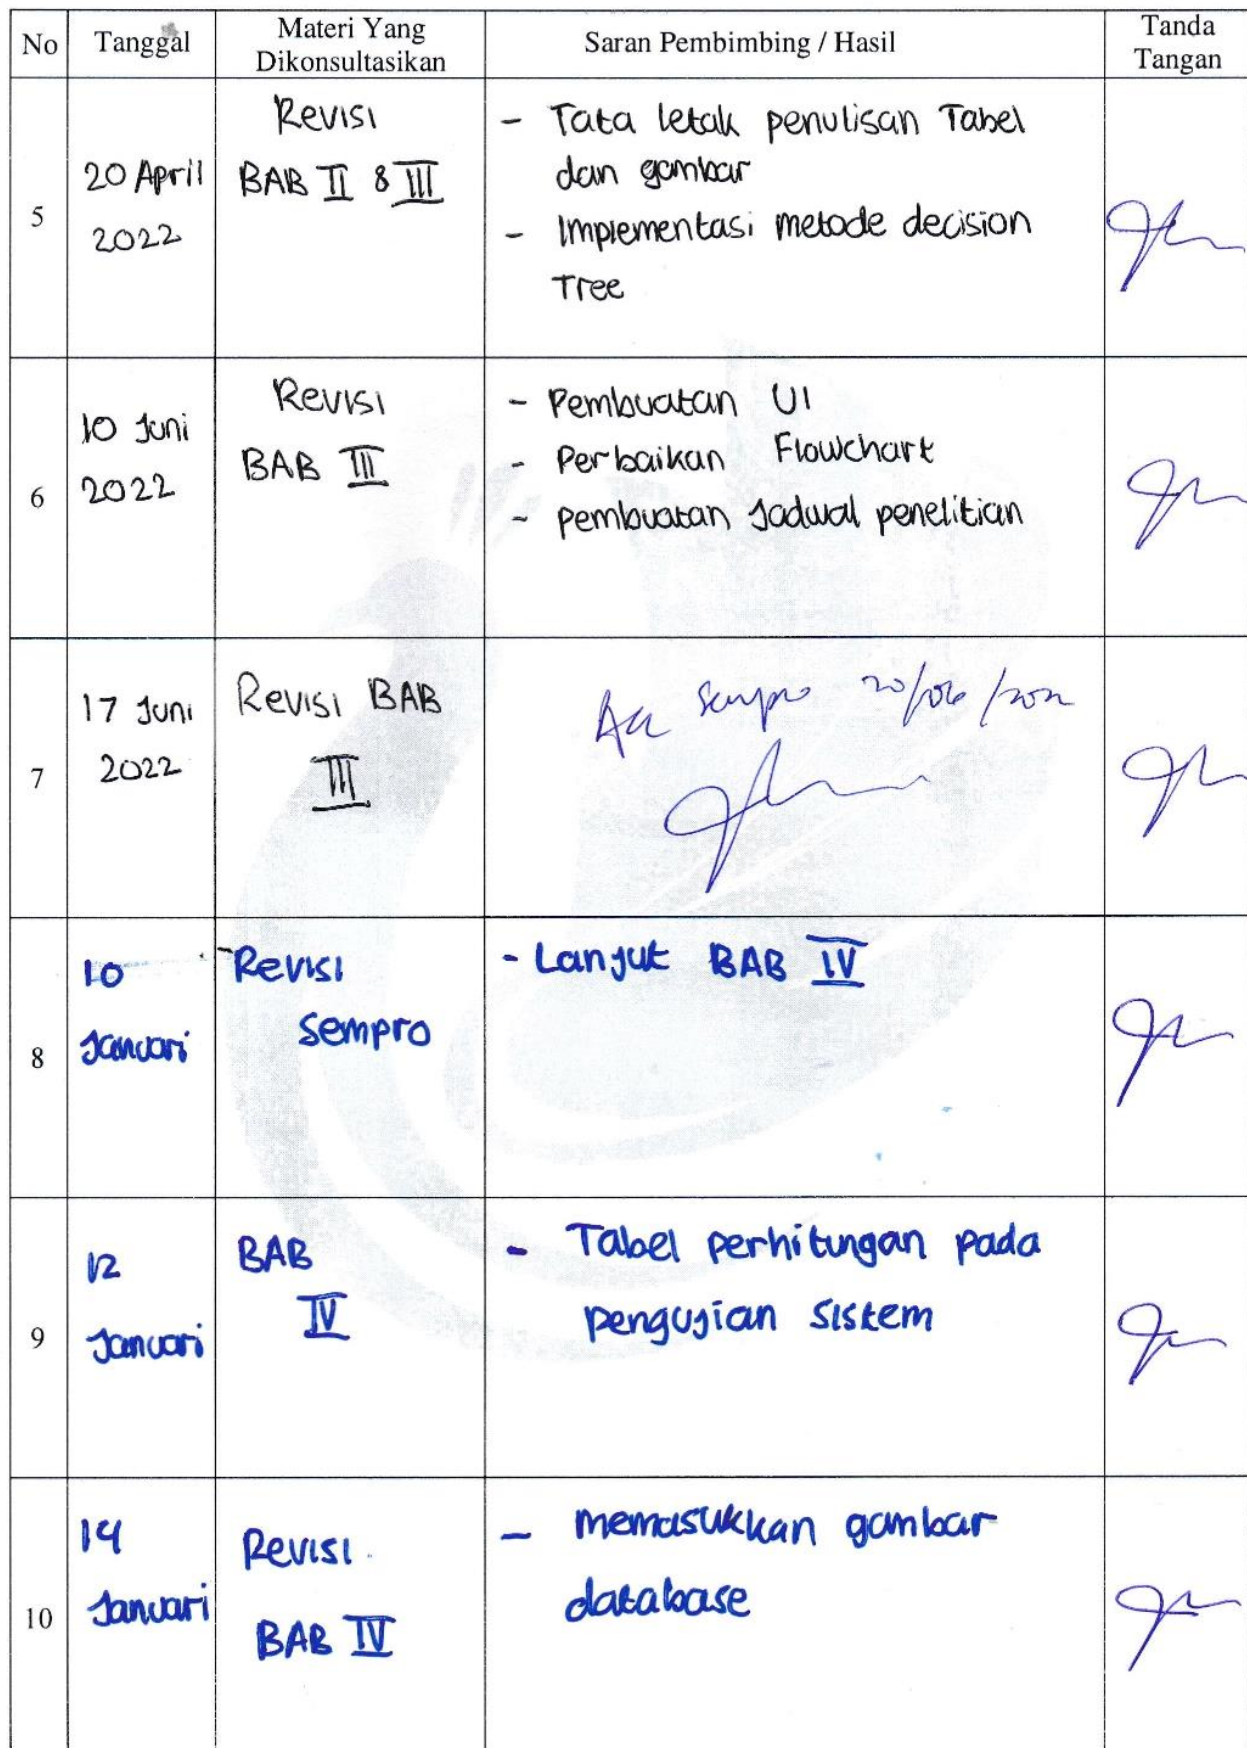 No Tanggal Materi Yang Dikonsultasikan Saran Pembimbing / Hasil Tanda Tangan
5
20 April
2022
Revisi
BAB II & III
- Tata letak penulisan Tabel
dan gambar
- Implementasi metode decision
Tree
6
10 Juni
2022
Revisi
BAB III
- Pembuatan UI
- Perbaikan Flowchart
- pembuatan Jadwal penelitian
7
17 Juni
2022
Revisi BAB
III
Acc Sempro 20/06/2022
8
10
Januari
Revisi
sempro
- Lanjut BAB IV
9
12
Januari
BAB
IV
- Tabel perhitungan pada
pengujian sistem
10
14
Januari
Revisi
BAB IV
- memasukkan gambar
database